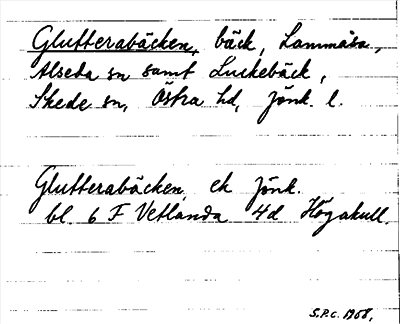 Glutterabäcken, bäck, Lammåsa,
Alseda sn samt Luckebäck,
Skede sn, Östra hd, Jönk. l.
Glutterabäcken ek Jönk.
bl. 6 F Vetlanda 4d Högakull.
S.P.C. 1968.